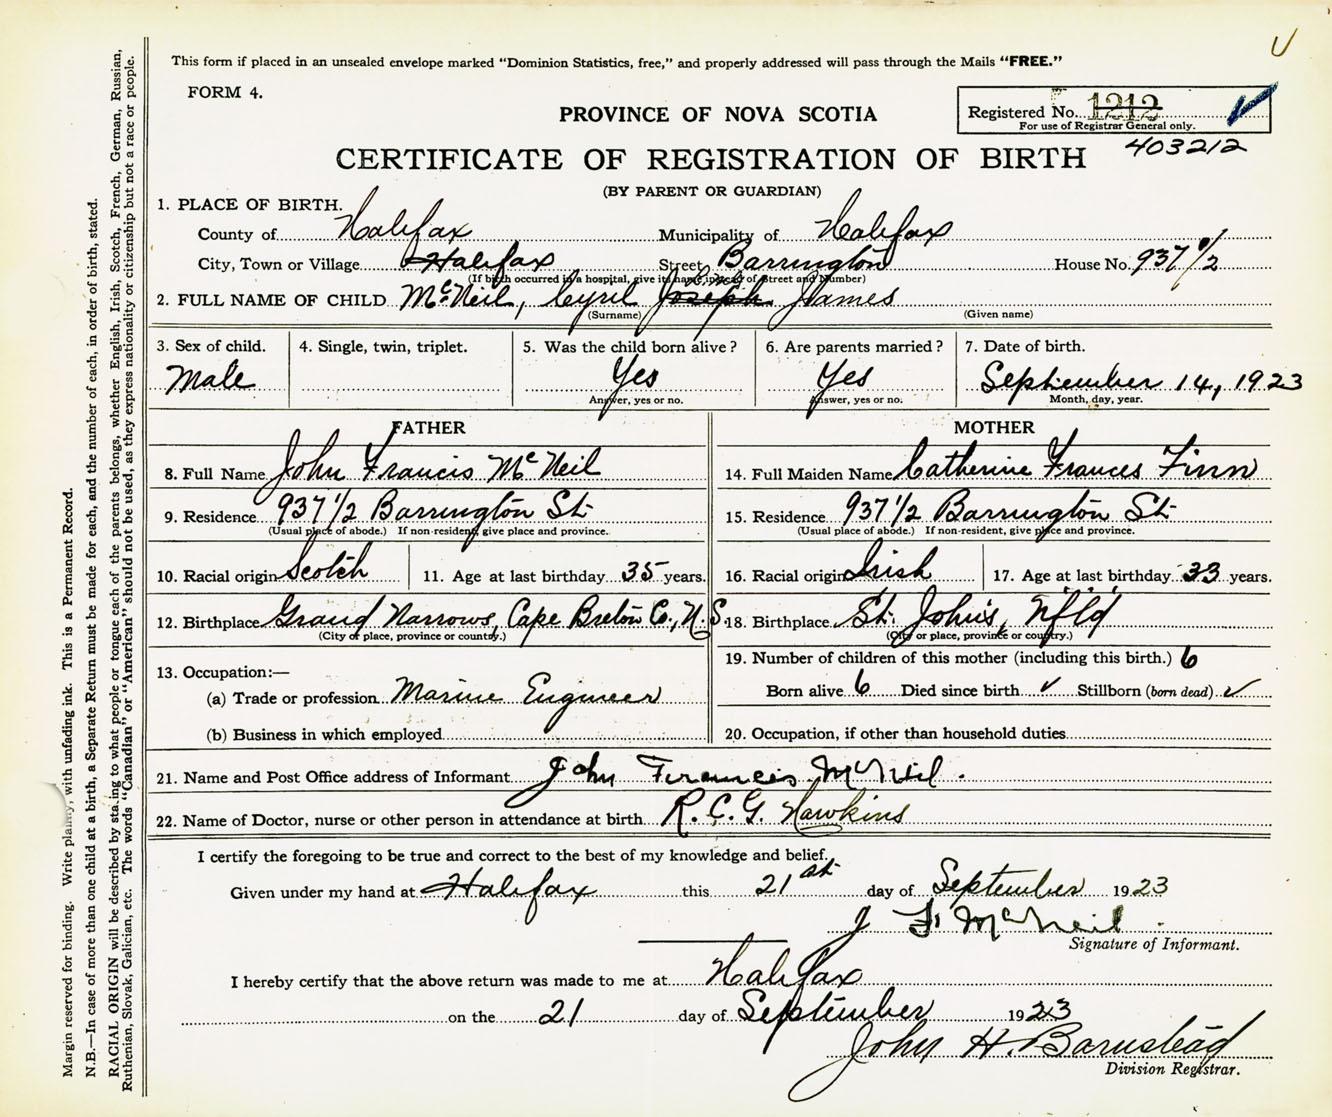 This form if placed in an unsealed envelope marked "Dominion Statistics, free," and properly addressed will pass through the Mails "FREE."
FORM 4.
PROVINCE OF NOVA SCOTIA
Registered No. 1212
For use of Registrar General only.
403212
CERTIFICATE OF REGISTRATION OF BIRTH
(BY PARENT OR GUARDIAN)
1. PLACE OF BIRTH.
County of Halifax Municipality of Halifax
City, Town or Village Halifax Street Barrington House No. 937 1/2
(If birth occurred in a hospital, give its name instead of Street and Number)
2. FULL NAME OF CHILD McNeil, Cyril Joseph James
(Surname) (Given name)
3. Sex of child. 4. Single, twin, triplet. 5. Was the child born alive? 6. Are parents married? 7. Date of birth.
Male Yes Yes September 14, 1923
Answer, yes or no. Answer, yes or no. Month, day, year.
FATHER MOTHER
8. Full Name John Francis McNeil 14. Full Maiden Name Catherine Frances Finn
9. Residence 937 1/2 Barrington St. 15. Residence 937 1/2 Barrington St.
(Usual place of abode.) If non-resident, give place and province. (Usual place of abode.) If non-resident, give place and province.
10. Racial origin Scotch 11. Age at last birthday 35 years. 16. Racial origin Irish 17. Age at last birthday 33 years.
12. Birthplace Grand Narrows, Cape Breton Co., N.S. 18. Birthplace St. John's, Nfld
(City or place, province or country.) (City or place, province or country.)
13. Occupation:— 19. Number of children of this mother (including this birth.) 6
(a) Trade or profession Marine Engineer Born alive 6 Died since birth ✓ Stillborn (born dead) ✓
(b) Business in which employed 20. Occupation, if other than household duties
21. Name and Post Office address of Informant John Francis McNeil.
22. Name of Doctor, nurse or other person in attendance at birth R. C. G. Hawkins
I certify the foregoing to be true and correct to the best of my knowledge and belief.
Given under my hand at Halifax this 21st day of September 1923
J F. McNeil
Signature of Informant.
I hereby certify that the above return was made to me at Halifax
on the 21 day of September 1923
John H. Barnstead
Division Registrar.
Margin reserved for binding. Write plainly, with unfading ink. This is a Permanent Record.
N.B.—In case of more than one child at a birth, a Separate Return must be made for each, and the number of each, in order of birth, stated.
RACIAL ORIGIN will be described by stating to what people or tongue each of the parents belongs, whether English, Irish, Scotch, French, German, Russian,
Ruthenian, Slovak, Galician, etc. The words "Canadian" or "American" should not be used, as they express nationality or citizenship but not a race or people.